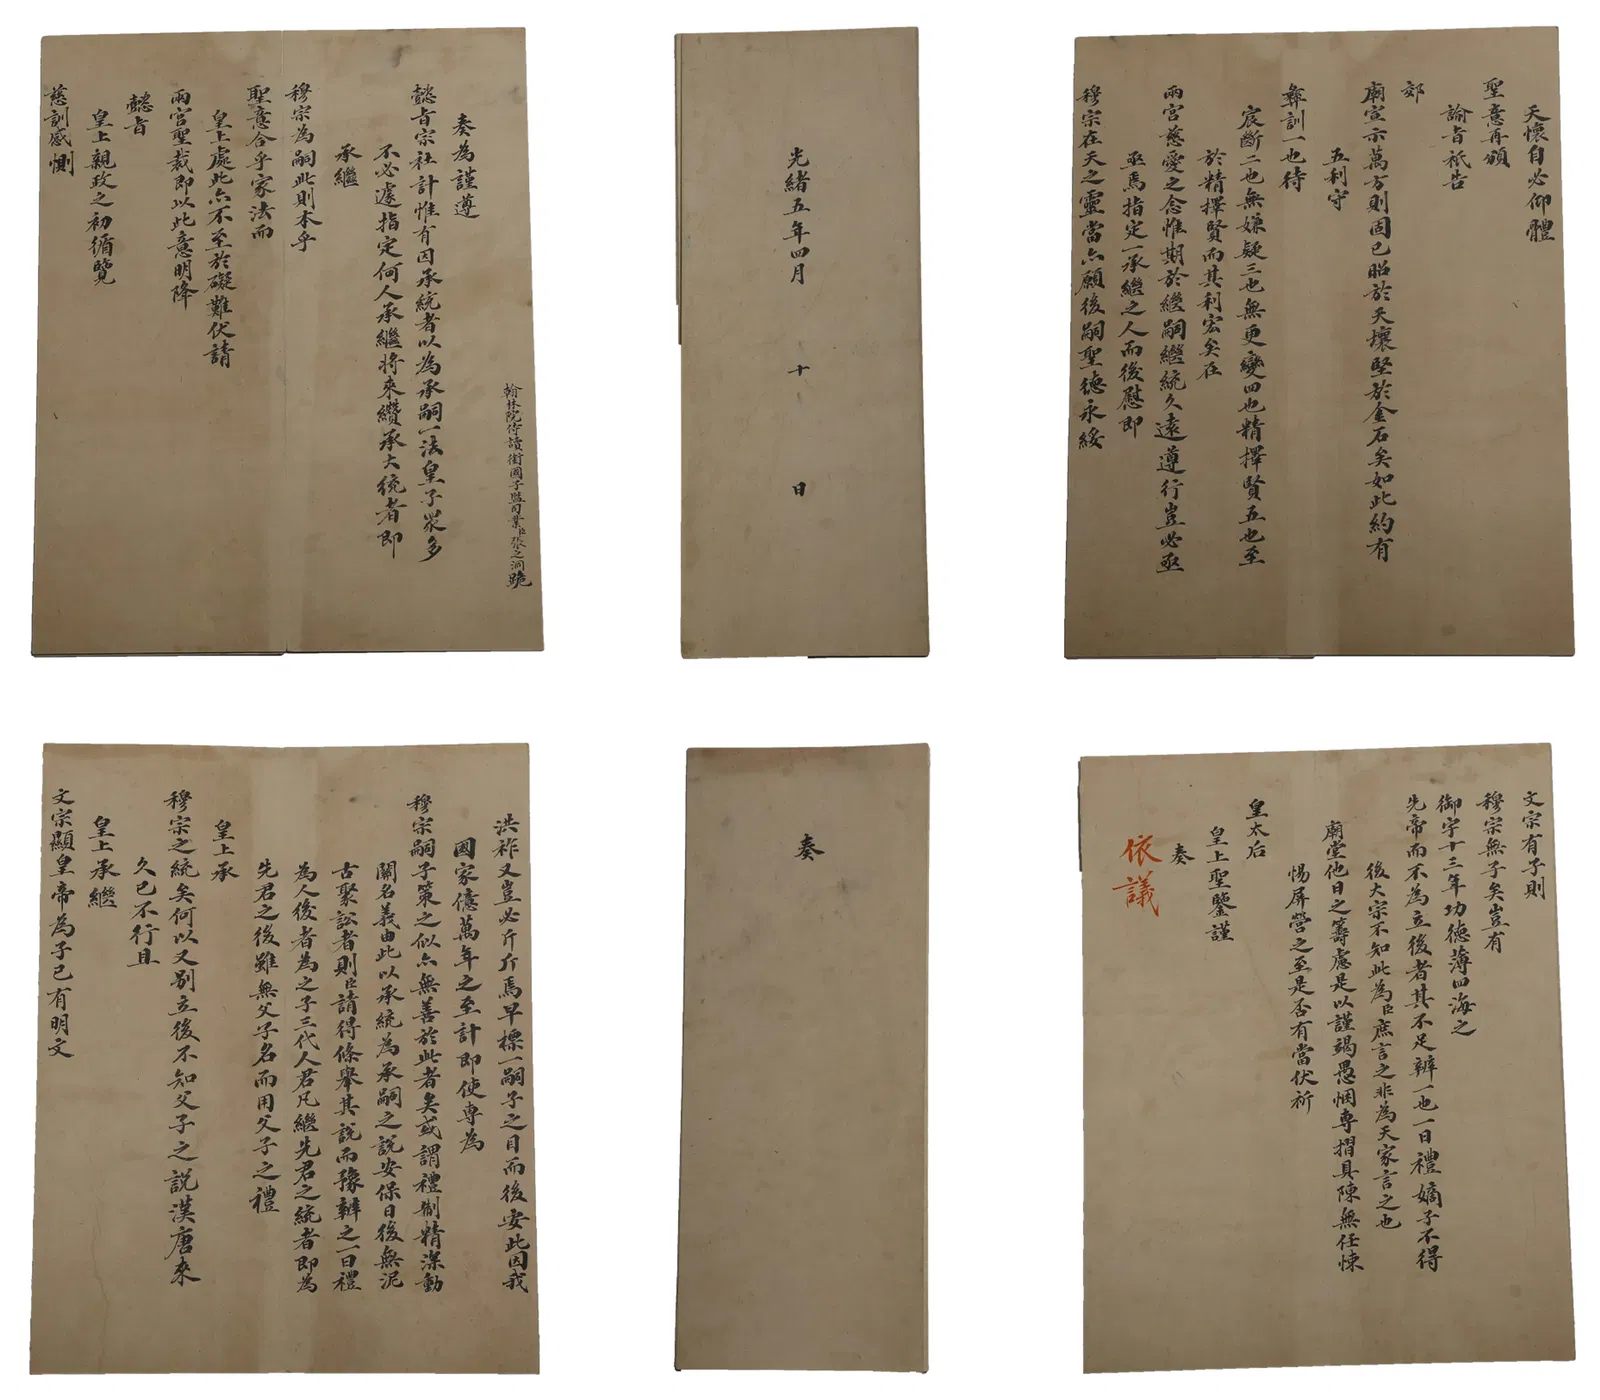 奏
翰林院侍讀銜國子監司業臣張之洞跪
奏為謹遵
懿旨宗社計惟有因承統者以為承嗣一法皇子衆多
不必遽指定何人承繼將來纘承大統者即
承繼
穆宗為嗣此則本乎
聖意合乎家法而
皇上處此亦不至於礙難伏請
兩宮聖裁即以此意明降
懿旨
皇上親政之初循覽
慈訓感惻
天懷自必仰體
聖意再頒
諭旨祇告
郊
廟宣示萬方則固已昭於天壤堅於金石矣如此約有
五利守
彝訓一也待
宸斷二也無嫌疑三也無更變四也精擇賢五也至
於精擇賢而其利宏矣在
兩宮慈愛之念惟期於繼嗣繼統久遠遵行豈必亟
亟焉指定一承繼之人而後慰即
穆宗在天之靈當亦願後嗣聖德永綏
洪祚又豈必斤斤焉早標一嗣子之目而後安此固我
國家億萬年之至計即使專為
穆宗嗣子策之似亦無善於此者矣或謂禮制精深動
關名義由此以承統為承嗣之說安保日後無泥
古聚訟者則臣請得條舉其說而豫辨之一曰禮
為人後者為之子三代人君凡繼先君之統者即為
先君之後雖無父子名而用父子之禮
皇上承
穆宗之統矣何以又別立後不知父子之說漢唐來
久已不行且
皇上承繼
文宗顯皇帝為子已有明文
文宗有子則
穆宗無子矣豈有
御宇十三年功德薄四海之
先帝而不為立後者其不足辨一也一曰禮嫡子不得
後大宗不知此為臣庶言之非為天家言之也
廟堂他日之籌慮是以謹竭愚悃專摺具陳無任悚
惕屏營之至是否有當伏祈
皇太后
皇上聖鑒謹
奏
依議
光緒五年四月 十 日